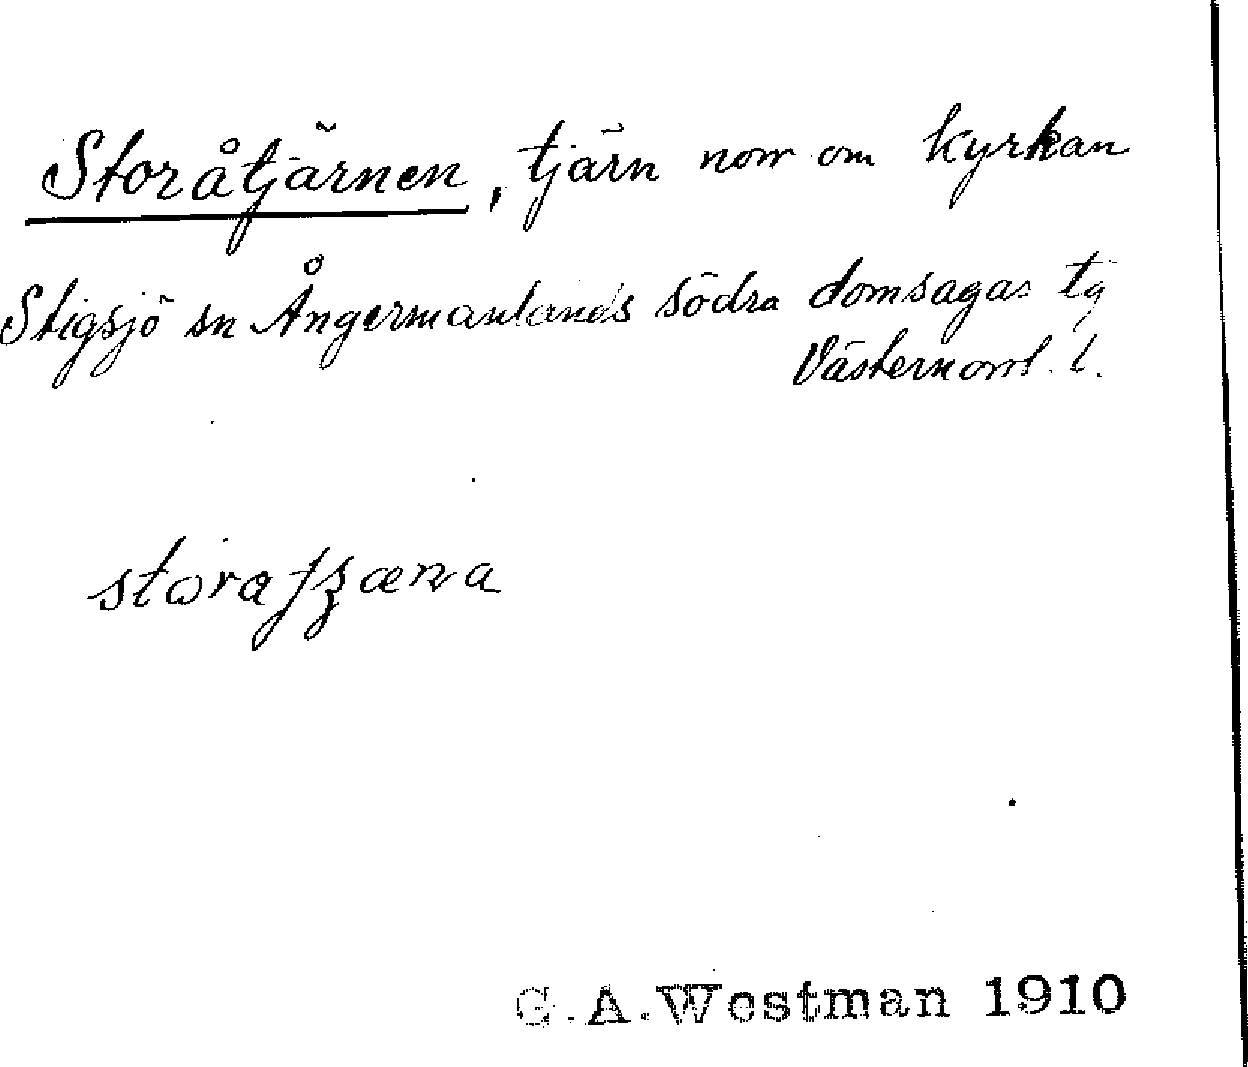 Storåtjärnen, tjärn norr om kyrkan
Stigsjö sn Ångermanlands södra domsagas tg
Västernorrl. l.
C.A.Westman 1910